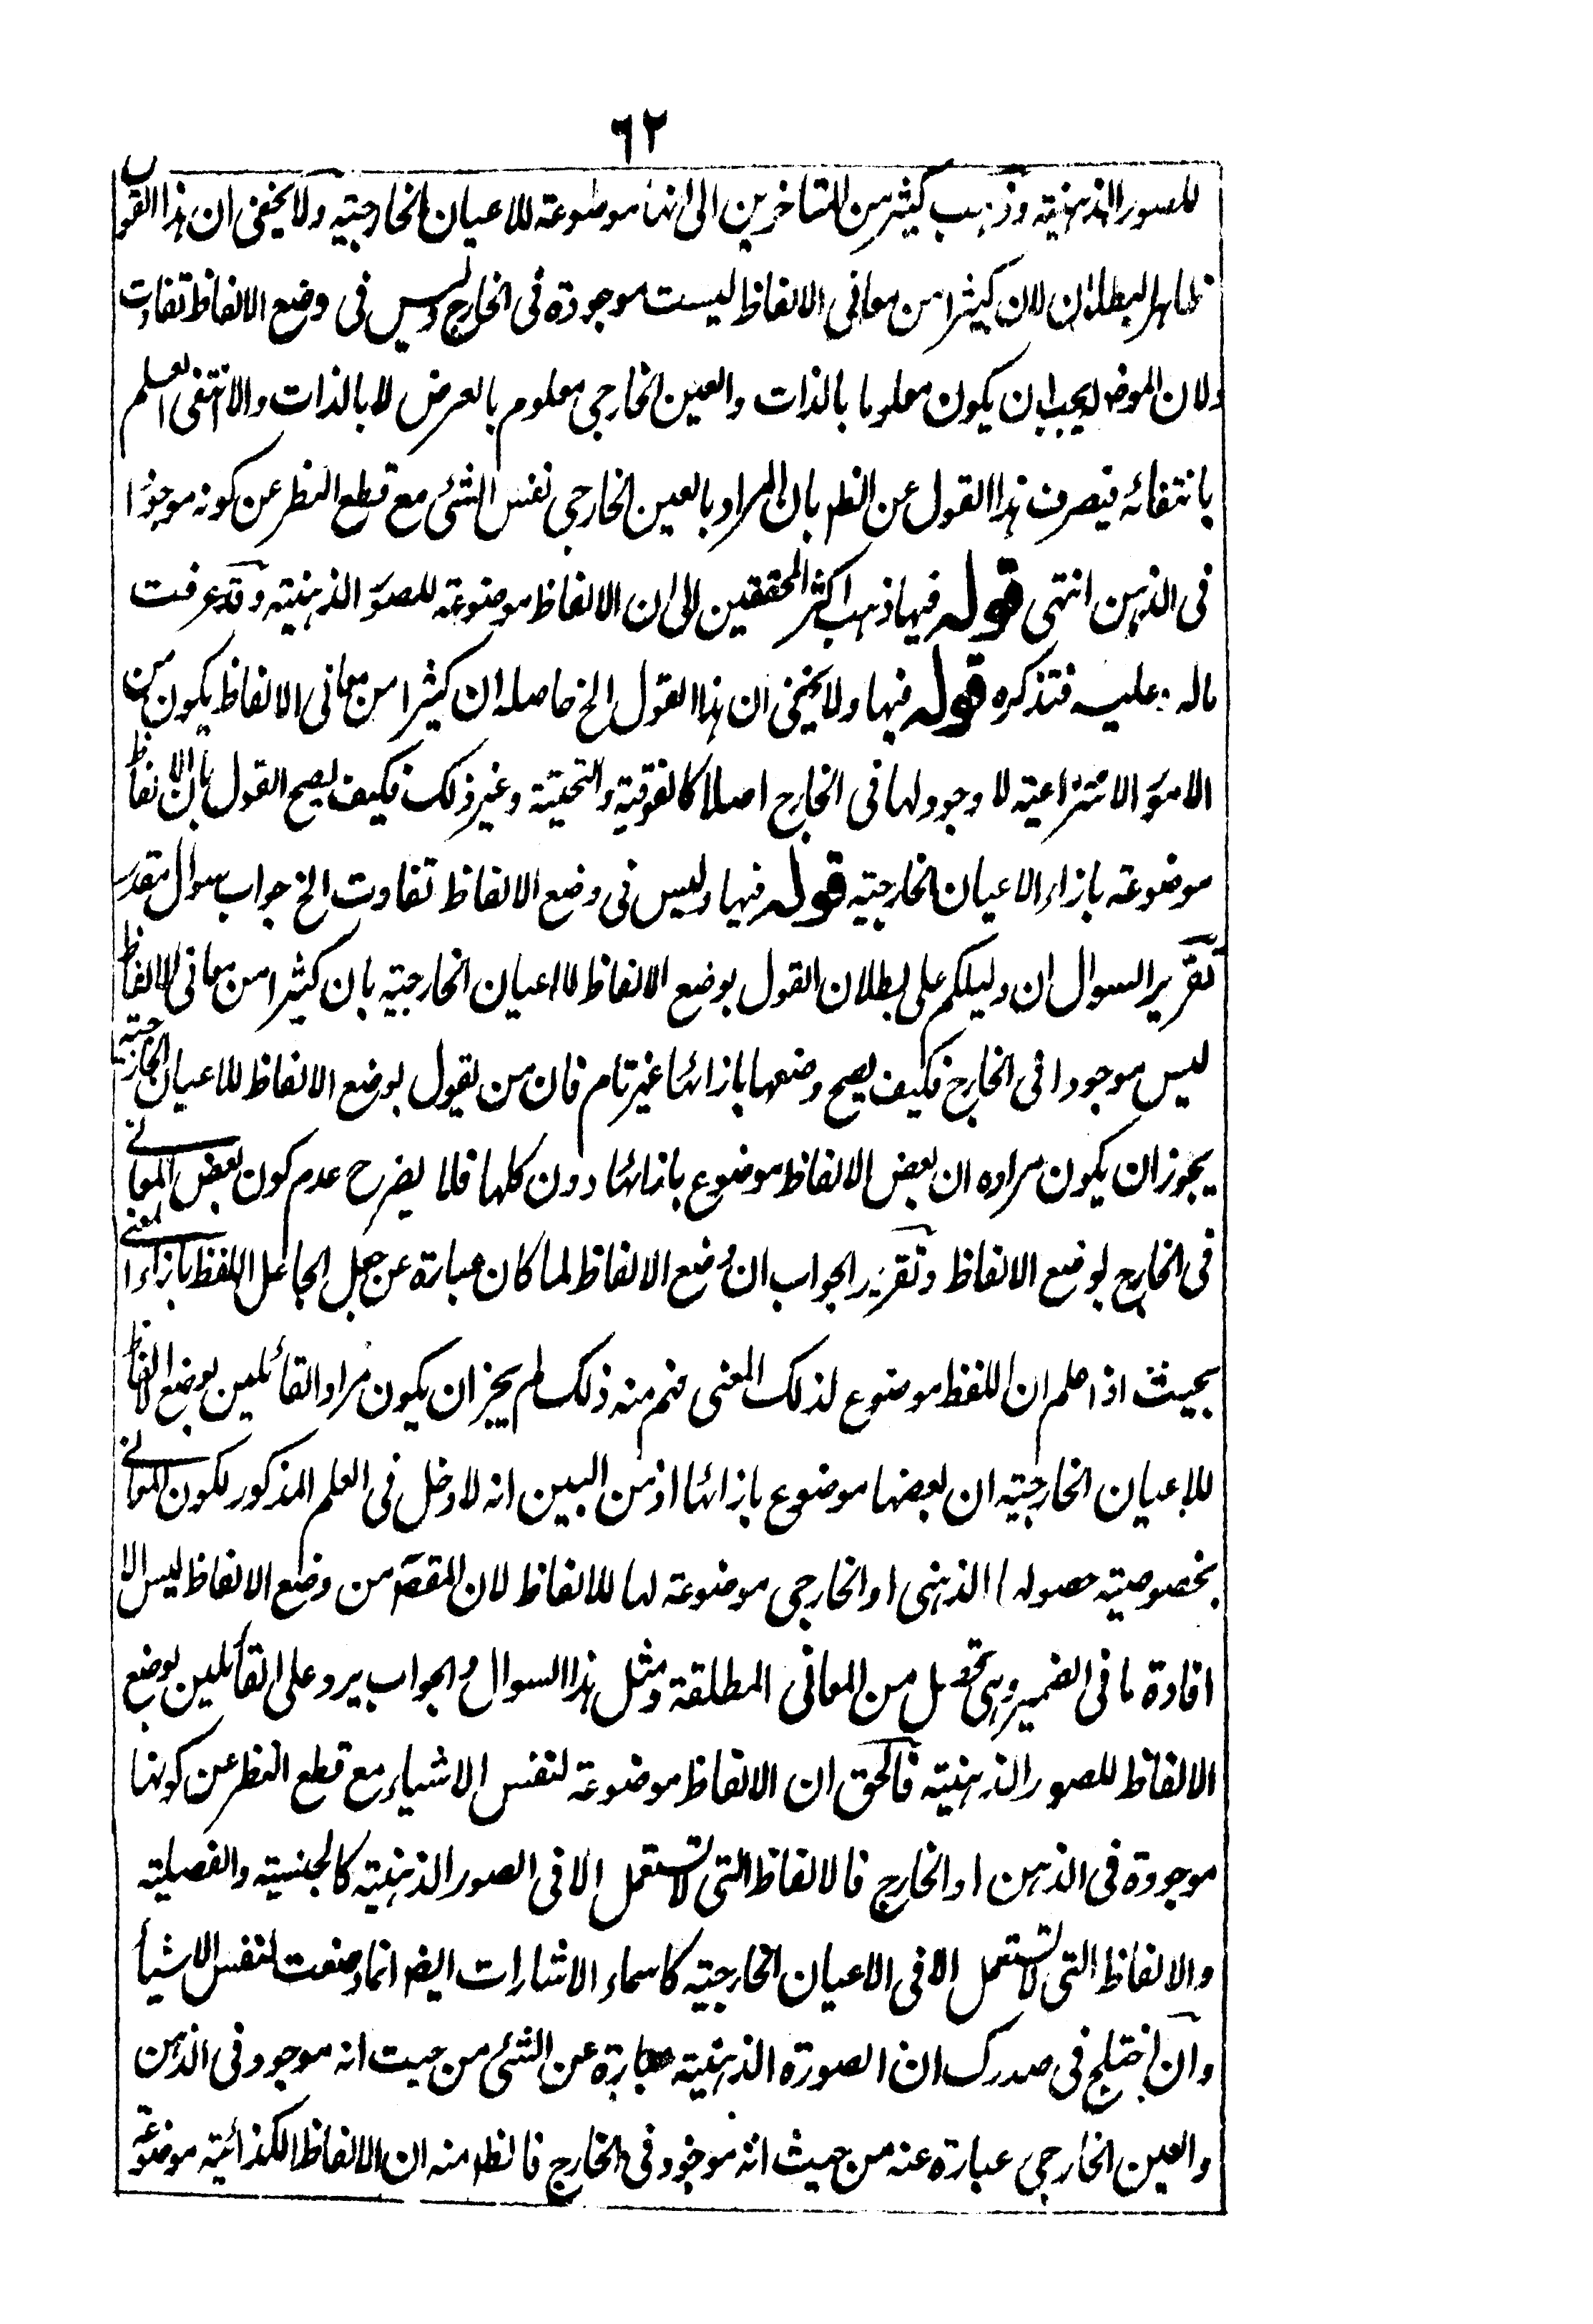 ٦٢
للصور الذهنية وذهب كثير من المتاخرين الى انها موضوعة للاعيان الخارجية ولا يخفى ان هذا القول
ظاهر البطلان لان كثيرا من معانى الالفاظ ليست موجودة فى الخارج وليس فى وضع الالفاظ تفاوت
ولان الموضوع له يجب ان يكون معلوما بالذات والعين الخارجى معلوم بالعرض لا بالذات والا انتفى العلم
بانتفائه فيصرف هذا القول عن الظ بان المراد بالعين الخارجى نفس الشئ مع قطع النظر عن كونه موجودا
فى الذهن انتهى قوله فيها ذهب اكثر المحققين الى ان الالفاظ موضوعة للصور الذهنية وقد عرفت
ماله وعليه فتذكره قوله فيها ولا يخفى ان هذا القول الخ حاصله ان كثيرا من معانى الالفاظ يكون من
الامور الانتزاعية لا وجود لها فى الخارج اصلا كالفوقية والتحتية وغير ذلك فكيف يصح القول بان الالفاظ
موضوعة بازاء الاعيان الخارجية قوله فيها وليس فى وضع الالفاظ تفاوت الخ جواب سوال مقدر
تقرير السوال ان دليلكم على بطلان القول بوضع الالفاظ للاعيان الخارجية بان كثيرا من معانى الالفاظ
ليس موجودا فى الخارج فكيف يصح وضعها بازائها غير تام فان من يقول بوضع الالفاظ للاعيان الخارجية
يجوز ان يكون مراده ان بعض الالفاظ موضوع بازائها دون كلها فلا يضرح عدم كون بعض المعانى
فى الخارج لوضع الالفاظ وتقرير الجواب ان وضع الالفاظ لما كان عبارة عن جعل الجاعل اللفظ بازاء المعنى
بحيث اذا علم ان اللفظ موضوع لذلك المعنى فهم منه ذلك لم يجز ان يكون مراد القائلين بوضع الالفاظ
للاعيان الخارجية ان بعضها موضوع بازائها اذ من البين انه لا دخل فى العلم المذكور لكون المعانى
بخصوصية حصولها الذهنى او الخارجى موضوعة لها للالفاظ لان المقص من وضع الالفاظ ليس الا
افادة ما فى الضمير وهى تحصل من المعانى المطلقة ومثل هذا السوال والجواب يرد على القائلين بوضع
الالفاظ للصور الذهنية فالحق ان الالفاظ موضوعة لنفس الاشياء مع قطع النظر عن كونها
موجودة فى الذهن او الخارج فالالفاظ التى لا تستعمل الا فى الصور الذهنية كالجنسية والفصلية
والالفاظ التى لا تستعمل الا فى الاعيان الخارجية كاسماء الاشارات ايض انما وضعت لنفس الاشيا
وان اختلج فى صدرك ان الصورة الذهنية عبارة عن الشئ من حيث انه موجود فى الذهن
والعين الخارجى عبارة عنه من حيث انه موجود فى الخارج فالظ منه ان الالفاظ الكذائية موضوعة